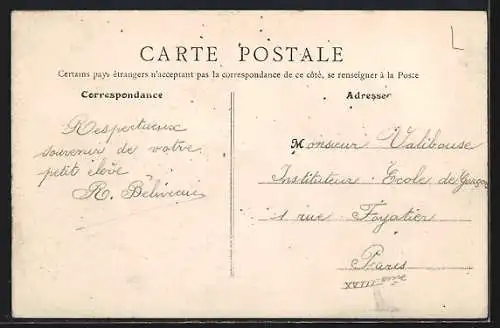 CARTE POSTALE
Certains pays étrangers n'acceptant pas la correspondance de ce côté, se renseigner à la Poste
Correspondance
Adresse
Respectueux
souvenir de votre
petit élève
R.
Monsieur Valibouse
Instituteur. Ecole de Garçons
1 rue Foyatier
Paris
XVIIIème